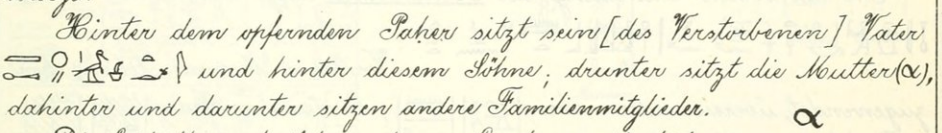 Hinter dem opfernden Paher sitzt sein [des Verstorbenen] Vater
und hinter diesem Söhne; drunter sitzt die Mutter (α),
dahinter und darunter sitzen andere Familienmitglieder. α